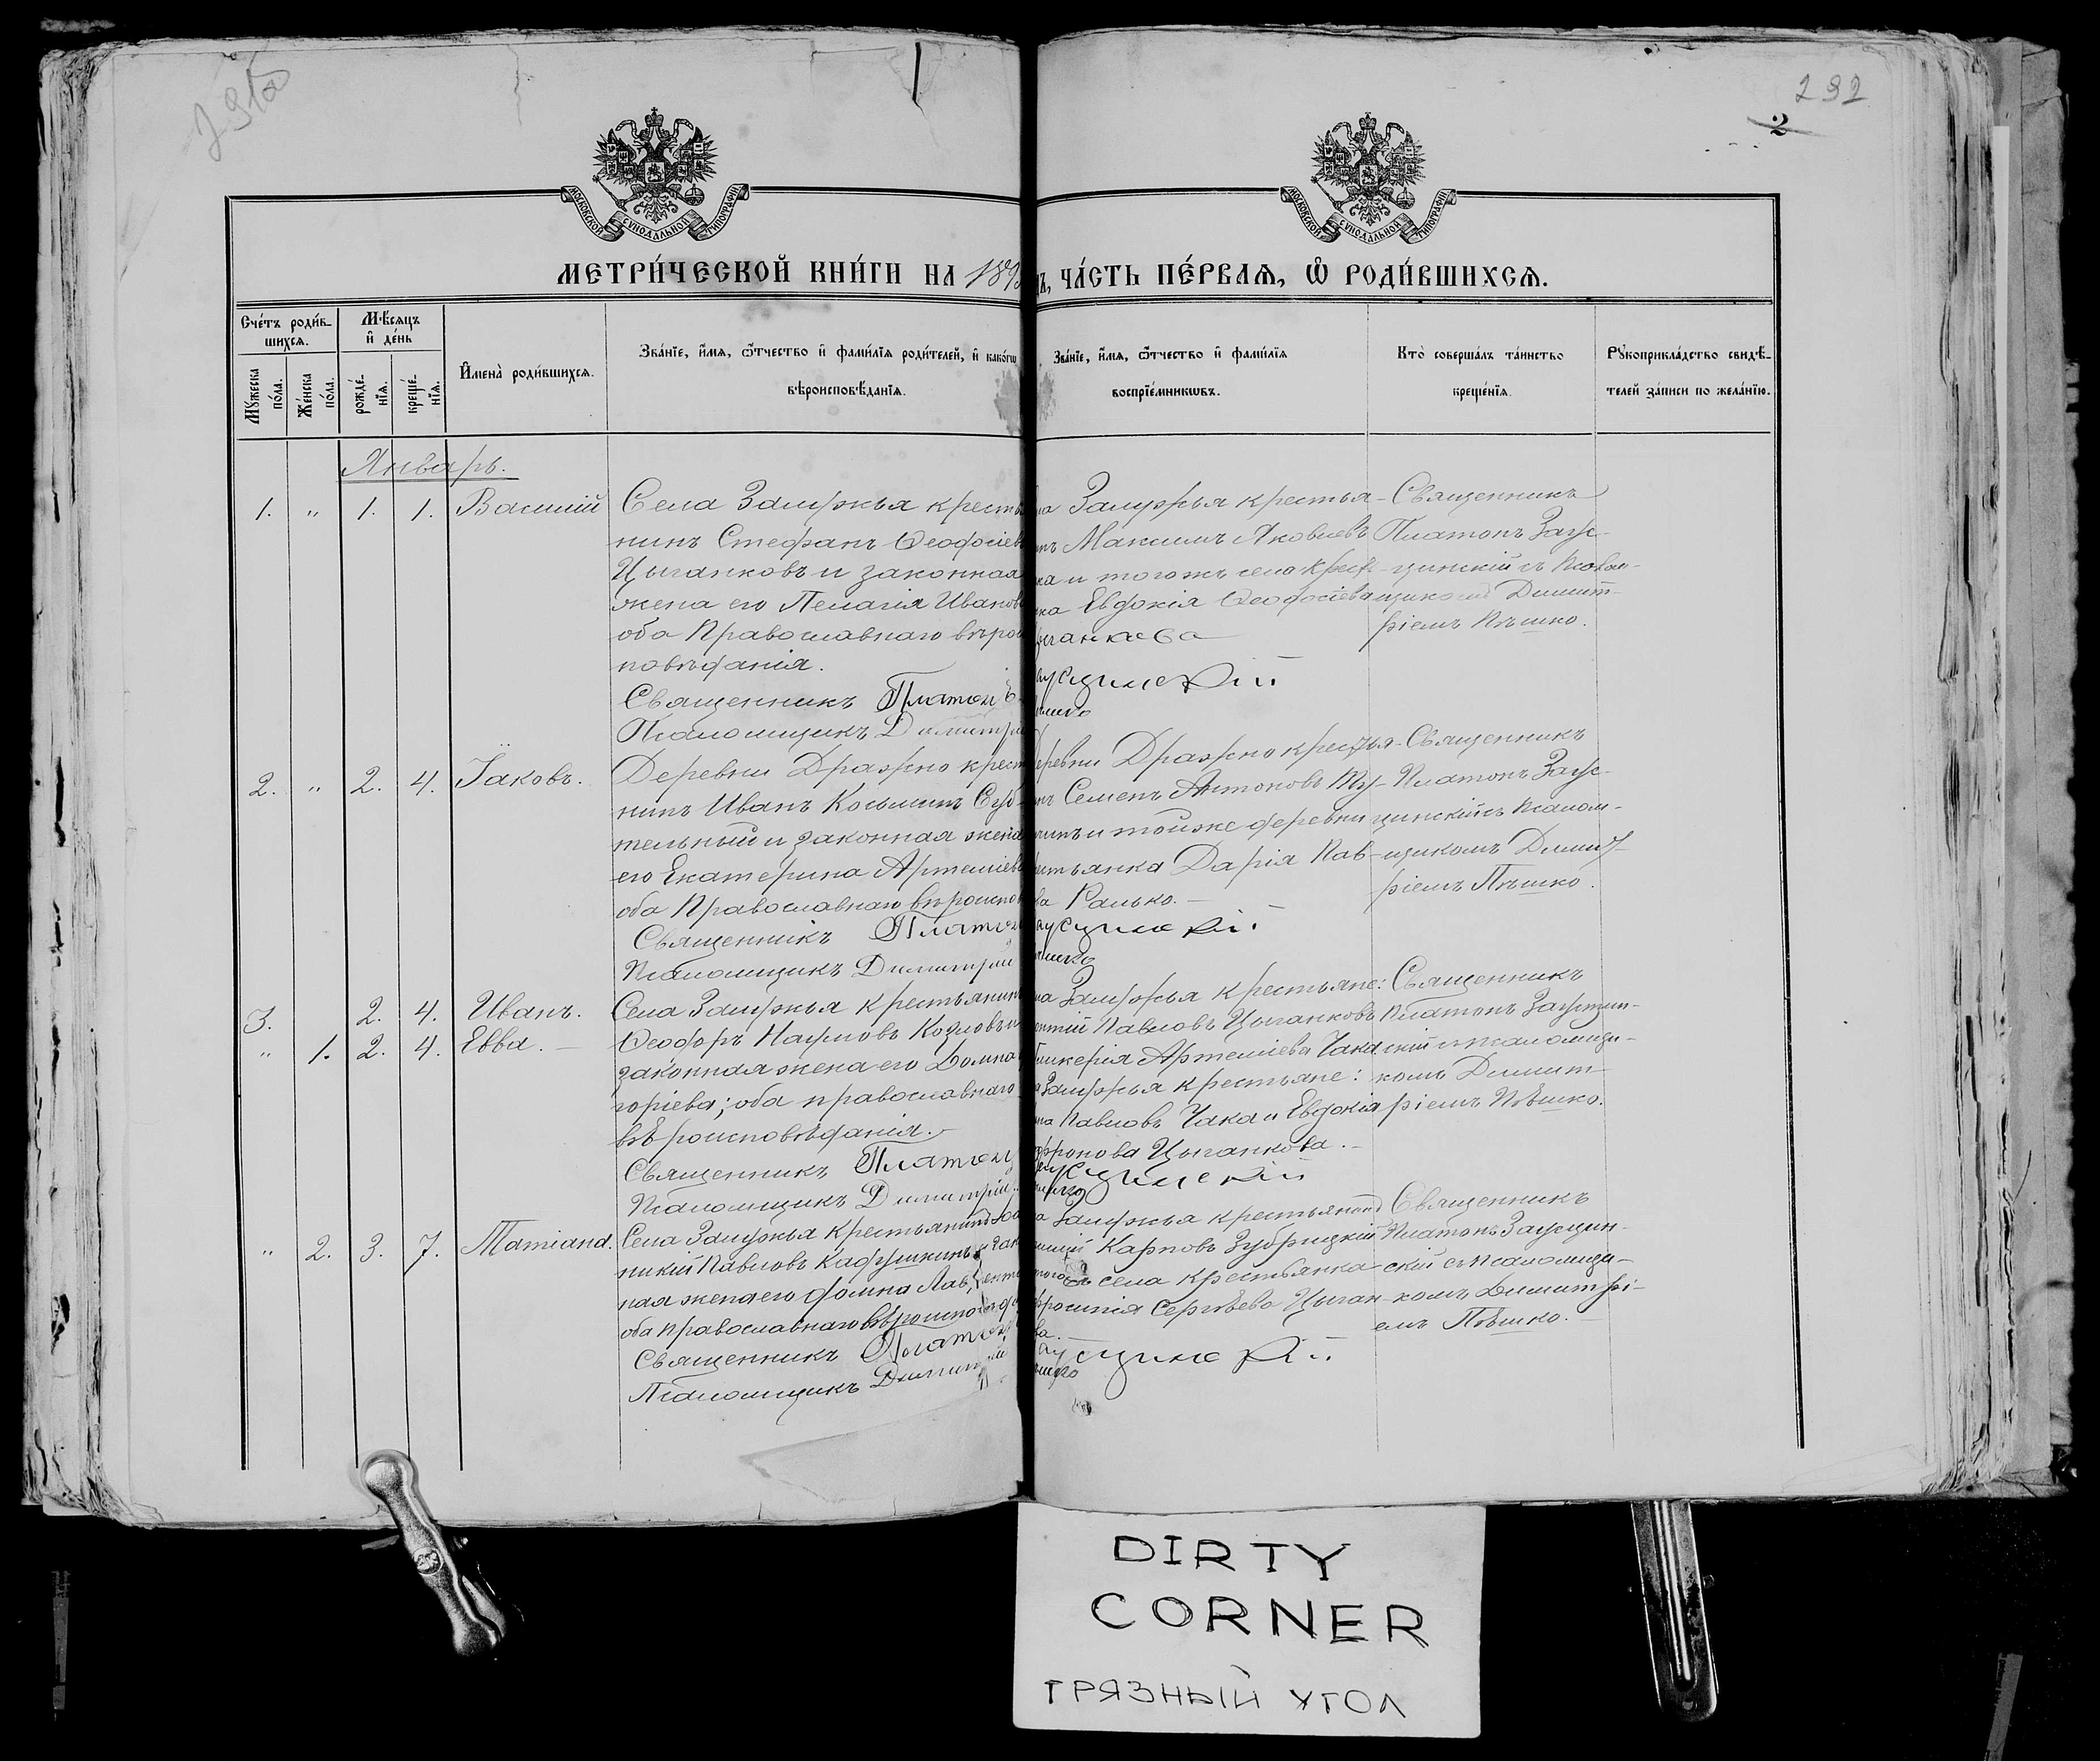 292
2
МОСКОВСКОЙ СѴНОДАЛЬНОЙ ТИПОГРАФІИ
МОСКОВСКОЙ СѴНОДАЛЬНОЙ ТИПОГРАФІИ
МЕТРИ́ЧЕСКОЙ КНИ́ГИ НА 189
Ъ, ЧА́СТЬ ПЕ́РВАѦ, Ѡ҆ РОДИ́ВШИХСѦ.
Сче́тъ роди́в-
шихсѧ.
Мꙋ́жеска по́ла.
Же́нска по́ла.
Мѣ́сѧцъ
и҆ де́нь
рожде́-
нїѧ.
креще́-
нїѧ.
И҆мена̀ роди́вшихсѧ.
Зва́нїе, и҆́мѧ, ѻ҆́тчество и҆ фами́лїѧ роди́телей, и҆ како́гѡ
вѣроисповѣ́данїѧ.
Зва́нїе, и҆́мѧ, ѻ҆́тчество и҆ фами́лїѧ
воспрїе́мникѡвъ.
Кто̀ соверша́лъ та́инство
креще́нїѧ.
Рꙋкоприкла́дство свидѣ́-
телей за́писи по жела́нїю.
Январь.
1. " 1. 1. Василій
Села Замужья кресть
нинъ Стефанъ Ѳеодосіев
Цыганковъ и законная
жена его Пелагія Иванов
оба Православнаго вѣрои
повѣданія.
Священникъ Платонъ
Псаломщикъ Димитрій
Замужья крестья-
Максимъ Яковлевъ
ка и тогожъ села крест
ка Евдокія Ѳеодосіева
ыганкова
аусцинскій
Священникъ
Платонъ Заус-
цинскій съ Псалом-
щикомъ Димит-
ріемъ Пѣшко.
2. " 2. 4. Іаковъ.
Деревни Дражно крест
нинъ Иванъ Косьминъ Суб-
тельный и законная жена
его Екатерина Артеміева
оба Православнаго вѣроиспов
Священникъ Платон
Псаломщикъ Димитрій
еревни Дражно крестья-
Семенъ Антоновъ
и тойже деревни
рестьянка Дарія Пав-
ва Ралько.
аусцинскій
Священникъ
Платонъ Заус-
цинскій съ Псалом-
щикомъ Димит-
ріемъ Пѣшко.
3. 2. 4. Иванъ.
" 1. 2. 4. Евва.
Села Замужья крестьянинъ
Ѳеодоръ Наумовъ Козловъ и
законная жена его Домна
горіева; оба православнаго
вѣроисповѣданія.
Священникъ Платон
Псаломщикъ Димитрій
Замужья крестьяне:
Павловъ Цыганковъ
ликерія Артеміева Чака
Замужья крестьяне:
Павловъ Чака и Евдокія
офронова Цыганкова.
усцинскій
Священникъ
Платонъ Заусцин-
скій съ псаломщи-
комъ Димит-
ріемъ Пѣшко.
" 2. 3. 7. Татіана.
Села Замужья крестьянинъ
Павловъ Кадушкинъ и зак
ная жена его Домна Лав
оба православнаго вѣроисповѣда
Священникъ Платон
Псаломщикъ Димитрій
Замужья крестьянинъ
Карповъ Зубрицкій
села крестьянка
фросинія Сергѣева Цыган-
ва.
аусцинскій
Священникъ
Платонъ Заусцин-
скій съ псаломщи-
комъ Димитрі-
емъ Пѣшко.
DIRTY
CORNER
ГРЯЗНЫЙ УГОЛ